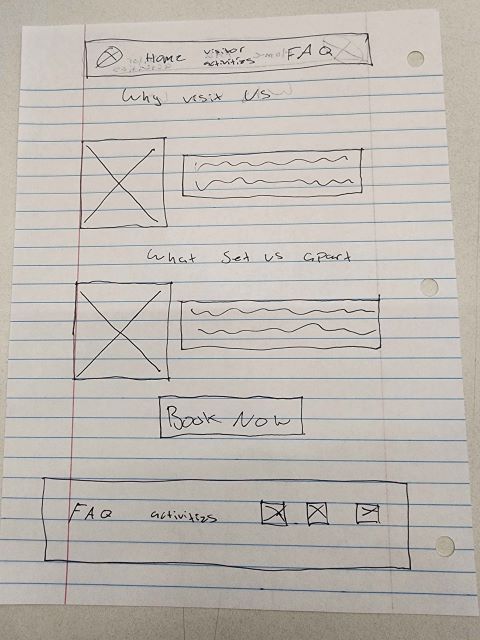 Home visitor activities FAQ
Why visit Us
What Set Us apart
Book Now
FAQ activities